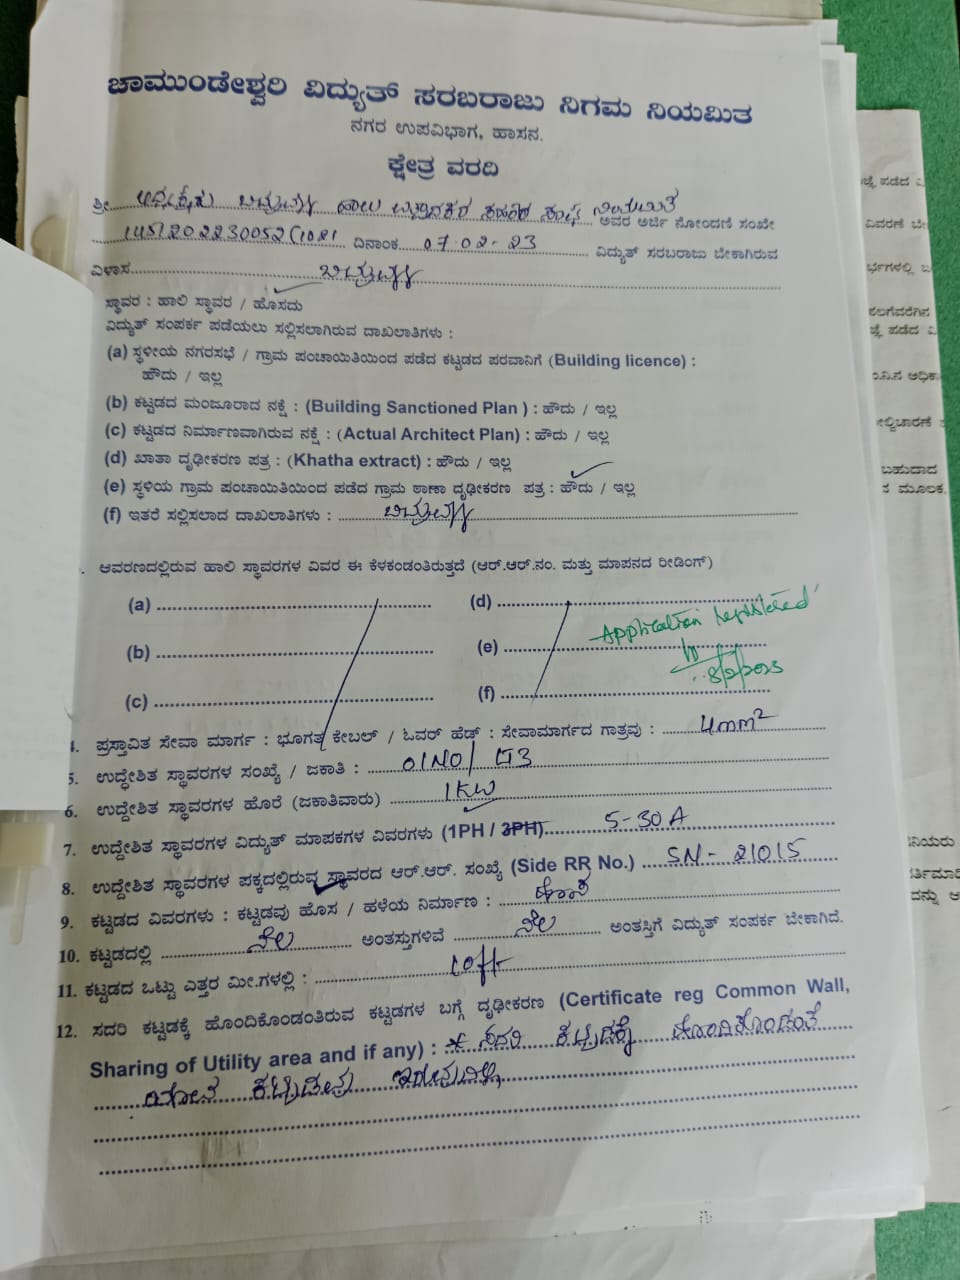 ಚಾಮುಂಡೇಶ್ವರಿ ವಿದ್ಯುತ್ ಸರಬರಾಜು ನಿಗಮ ನಿಯಮಿತ
ನಗರ ಉಪವಿಭಾಗ, ಹಾಸನ.
ಕ್ಷೇತ್ರ ವರದಿ
ಶ್ರೀ ಅಧ್ಯಕ್ಷರು ಹಾಲು ಸಹಕಾರ ಸಂಘ ನಿಯಮಿತ ಅವರ ಅರ್ಜಿ ನೋಂದಣಿ ಸಂಖೇ
ದಿನಾಂಕ 07-02-23 ವಿದ್ಯುತ್ ಸರಬರಾಜು ಬೇಕಾಗಿರುವ
ವಿಳಾಸ
ಸ್ಥಾವರ : ಹಾಲಿ ಸ್ಥಾವರ / ಹೊಸದು
ವಿದ್ಯುತ್ ಸಂಪರ್ಕ ಪಡೆಯಲು ಸಲ್ಲಿಸಲಾಗಿರುವ ದಾಖಲಾತಿಗಳು :
(a) ಸ್ಥಳೀಯ ನಗರಸಭೆ / ಗ್ರಾಮ ಪಂಚಾಯಿತಿಯಿಂದ ಪಡೆದ ಕಟ್ಟಡದ ಪರವಾನಿಗೆ (Building licence) :
ಹೌದು / ಇಲ್ಲ
(b) ಕಟ್ಟಡದ ಮಂಜೂರಾದ ನಕ್ಷೆ : (Building Sanctioned Plan ) : ಹೌದು / ಇಲ್ಲ
(c) ಕಟ್ಟಡದ ನಿರ್ಮಾಣವಾಗಿರುವ ನಕ್ಷೆ : (Actual Architect Plan) : ಹೌದು / ಇಲ್ಲ
(d) ಖಾತಾ ದೃಢೀಕರಣ ಪತ್ರ : (Khatha extract) : ಹೌದು / ಇಲ್ಲ
(e) ಸ್ಥಳಿಯ ಗ್ರಾಮ ಪಂಚಾಯಿತಿಯಿಂದ ಪಡೆದ ಗ್ರಾಮ ಠಾಣಾ ದೃಢೀಕರಣ ಪತ್ರ : ಹೌದು / ಇಲ್ಲ
(f) ಇತರೆ ಸಲ್ಲಿಸಲಾದ ದಾಖಲಾತಿಗಳು :
ಆವರಣದಲ್ಲಿರುವ ಹಾಲಿ ಸ್ಥಾವರಗಳ ವಿವರ ಈ ಕೆಳಕಂಡಂತಿರುತ್ತದೆ (ಆರ್.ಆರ್.ನಂ. ಮತ್ತು ಮಾಪನದ ರೀಡಿಂಗ್)
(a) (d)
Application registered
(b) (e)
8/2/2023
(c) (f)
ಪ್ರಸ್ತಾವಿತ ಸೇವಾ ಮಾರ್ಗ : ಭೂಗತ ಕೇಬಲ್ / ಓವರ್ ಹೆಡ್ : ಸೇವಾಮಾರ್ಗದ ಗಾತ್ರವು : 4mm²
5. ಉದ್ಧೇಶಿತ ಸ್ಥಾವರಗಳ ಸಂಖ್ಯೆ / ಜಕಾತಿ : 01NO/ LT3
6. ಉದ್ದೇಶಿತ ಸ್ಥಾವರಗಳ ಹೊರೆ (ಜಕಾತಿವಾರು) 1KW
7. ಉದ್ದೇಶಿತ ಸ್ಥಾವರಗಳ ವಿದ್ಯುತ್ ಮಾಪಕಗಳ ವಿವರಗಳು (1PH / 3PH) 5-30A
8. ಉದ್ದೇಶಿತ ಸ್ಥಾವರಗಳ ಪಕ್ಕದಲ್ಲಿರುವ ಸ್ಥಾವರದ ಆರ್.ಆರ್. ಸಂಖ್ಯೆ (Side RR No.) SN-21015
9. ಕಟ್ಟಡದ ವಿವರಗಳು : ಕಟ್ಟಡವು ಹೊಸ / ಹಳೆಯ ನಿರ್ಮಾಣ :
10. ಕಟ್ಟಡದಲ್ಲಿ ನೆಲ ಅಂತಸ್ತುಗಳಿವೆ ನೆಲ ಅಂತಸ್ತಿಗೆ ವಿದ್ಯುತ್ ಸಂಪರ್ಕ ಬೇಕಾಗಿದೆ.
11. ಕಟ್ಟಡದ ಒಟ್ಟು ಎತ್ತರ ಮೀ.ಗಳಲ್ಲಿ : 10ft
12. ಸದರಿ ಕಟ್ಟಡಕ್ಕೆ ಹೊಂದಿಕೊಂಡಂತಿರುವ ಕಟ್ಟಡಗಳ ಬಗ್ಗೆ ದೃಢೀಕರಣ (Certificate reg Common Wall,
Sharing of Utility area and if any) : ಸದರಿ ಕಟ್ಟಡಕ್ಕೆ ಹೊಂದಿಕೊಂಡಂತೆ
ಯಾವ ಕಟ್ಟಡವು ಇರುವುದಿಲ್ಲ